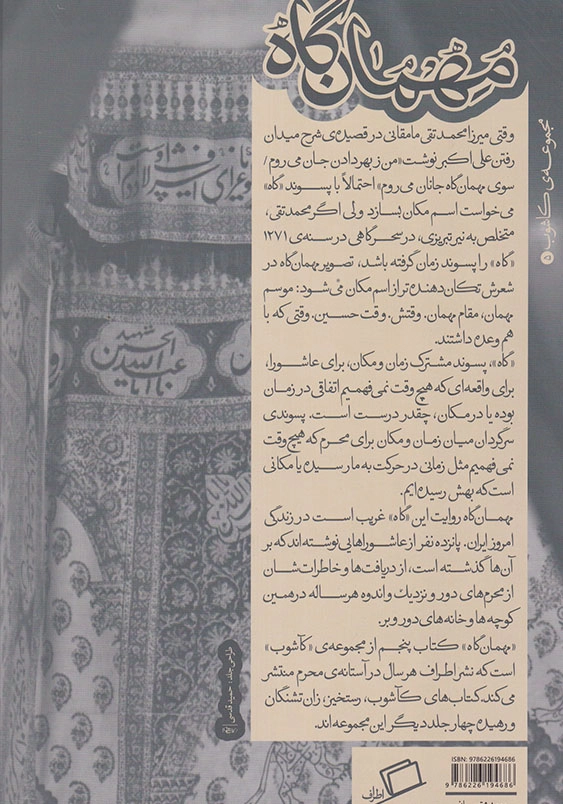 مهمان‌گاه
وقتی میرزا محمد تقی مامقانی در قصیده‌ی شرح میدان
رفتن علی اکبر نوشت «من ز بهر دادن جان می روم/
سوی مهمان‌گاه جانان می روم» احتمالاً با پسوند «گاه»
می‌خواست اسم مکان بسازد ولی اگر محمد تقی،
متخلص به نیر تبریزی، در سحرگاهی در سنه‌ی ۱۲۷۱
«گاه» را پسوند زمان گرفته باشد، تصویر مهمان‌گاه در
شعرش تکان‌دهنده‌تر از اسم مکان می‌شود: موسم
مهمان، مقام مهمان. وقتش. وقت حسین. وقتی که با
هم وعده داشتند.
«گاه»، پسوند مشترک زمان و مکان، برای عاشورا،
برای واقعه‌ای که هیچ وقت نمی‌فهمیم اتفاقی در زمان
بوده یا در مکان، چقدر درست است. پسوندی
سرگردان میان زمان و مکان برای محرم که هیچ وقت
نمی‌فهمیم مثل زمانی در حرکت به ما رسیده یا مکانی
است که بهش رسیده‌ایم.
مهمان‌گاه روایت این «گاه» غریب است در زندگی
امروز ایران. پانزده نفر از عاشوراهایی نوشته‌اند که بر
آن‌ها گذشته است، از دریافت‌ها و خاطرات‌شان
از محرم‌های دور و نزدیک و اندوه هر ساله در همین
کوچه‌ها و خانه‌های دور و بر.
«مهمان‌گاه» کتاب پنجم از مجموعه‌ی «کآشوب»
است که نشر اطراف هر سال در آستانه‌ی محرم منتشر
می‌کند. کتاب‌های کآشوب، رستخیز، زان تشنگان
و رهیده چهار جلد دیگر این مجموعه‌اند.
مجموعه‌ی کآشوب ۵
شهید
اباعبدالله الحسین
طراحی جلد: حمید قدسی
اطراف
ISBN: 9786226194686
9 786226 194686